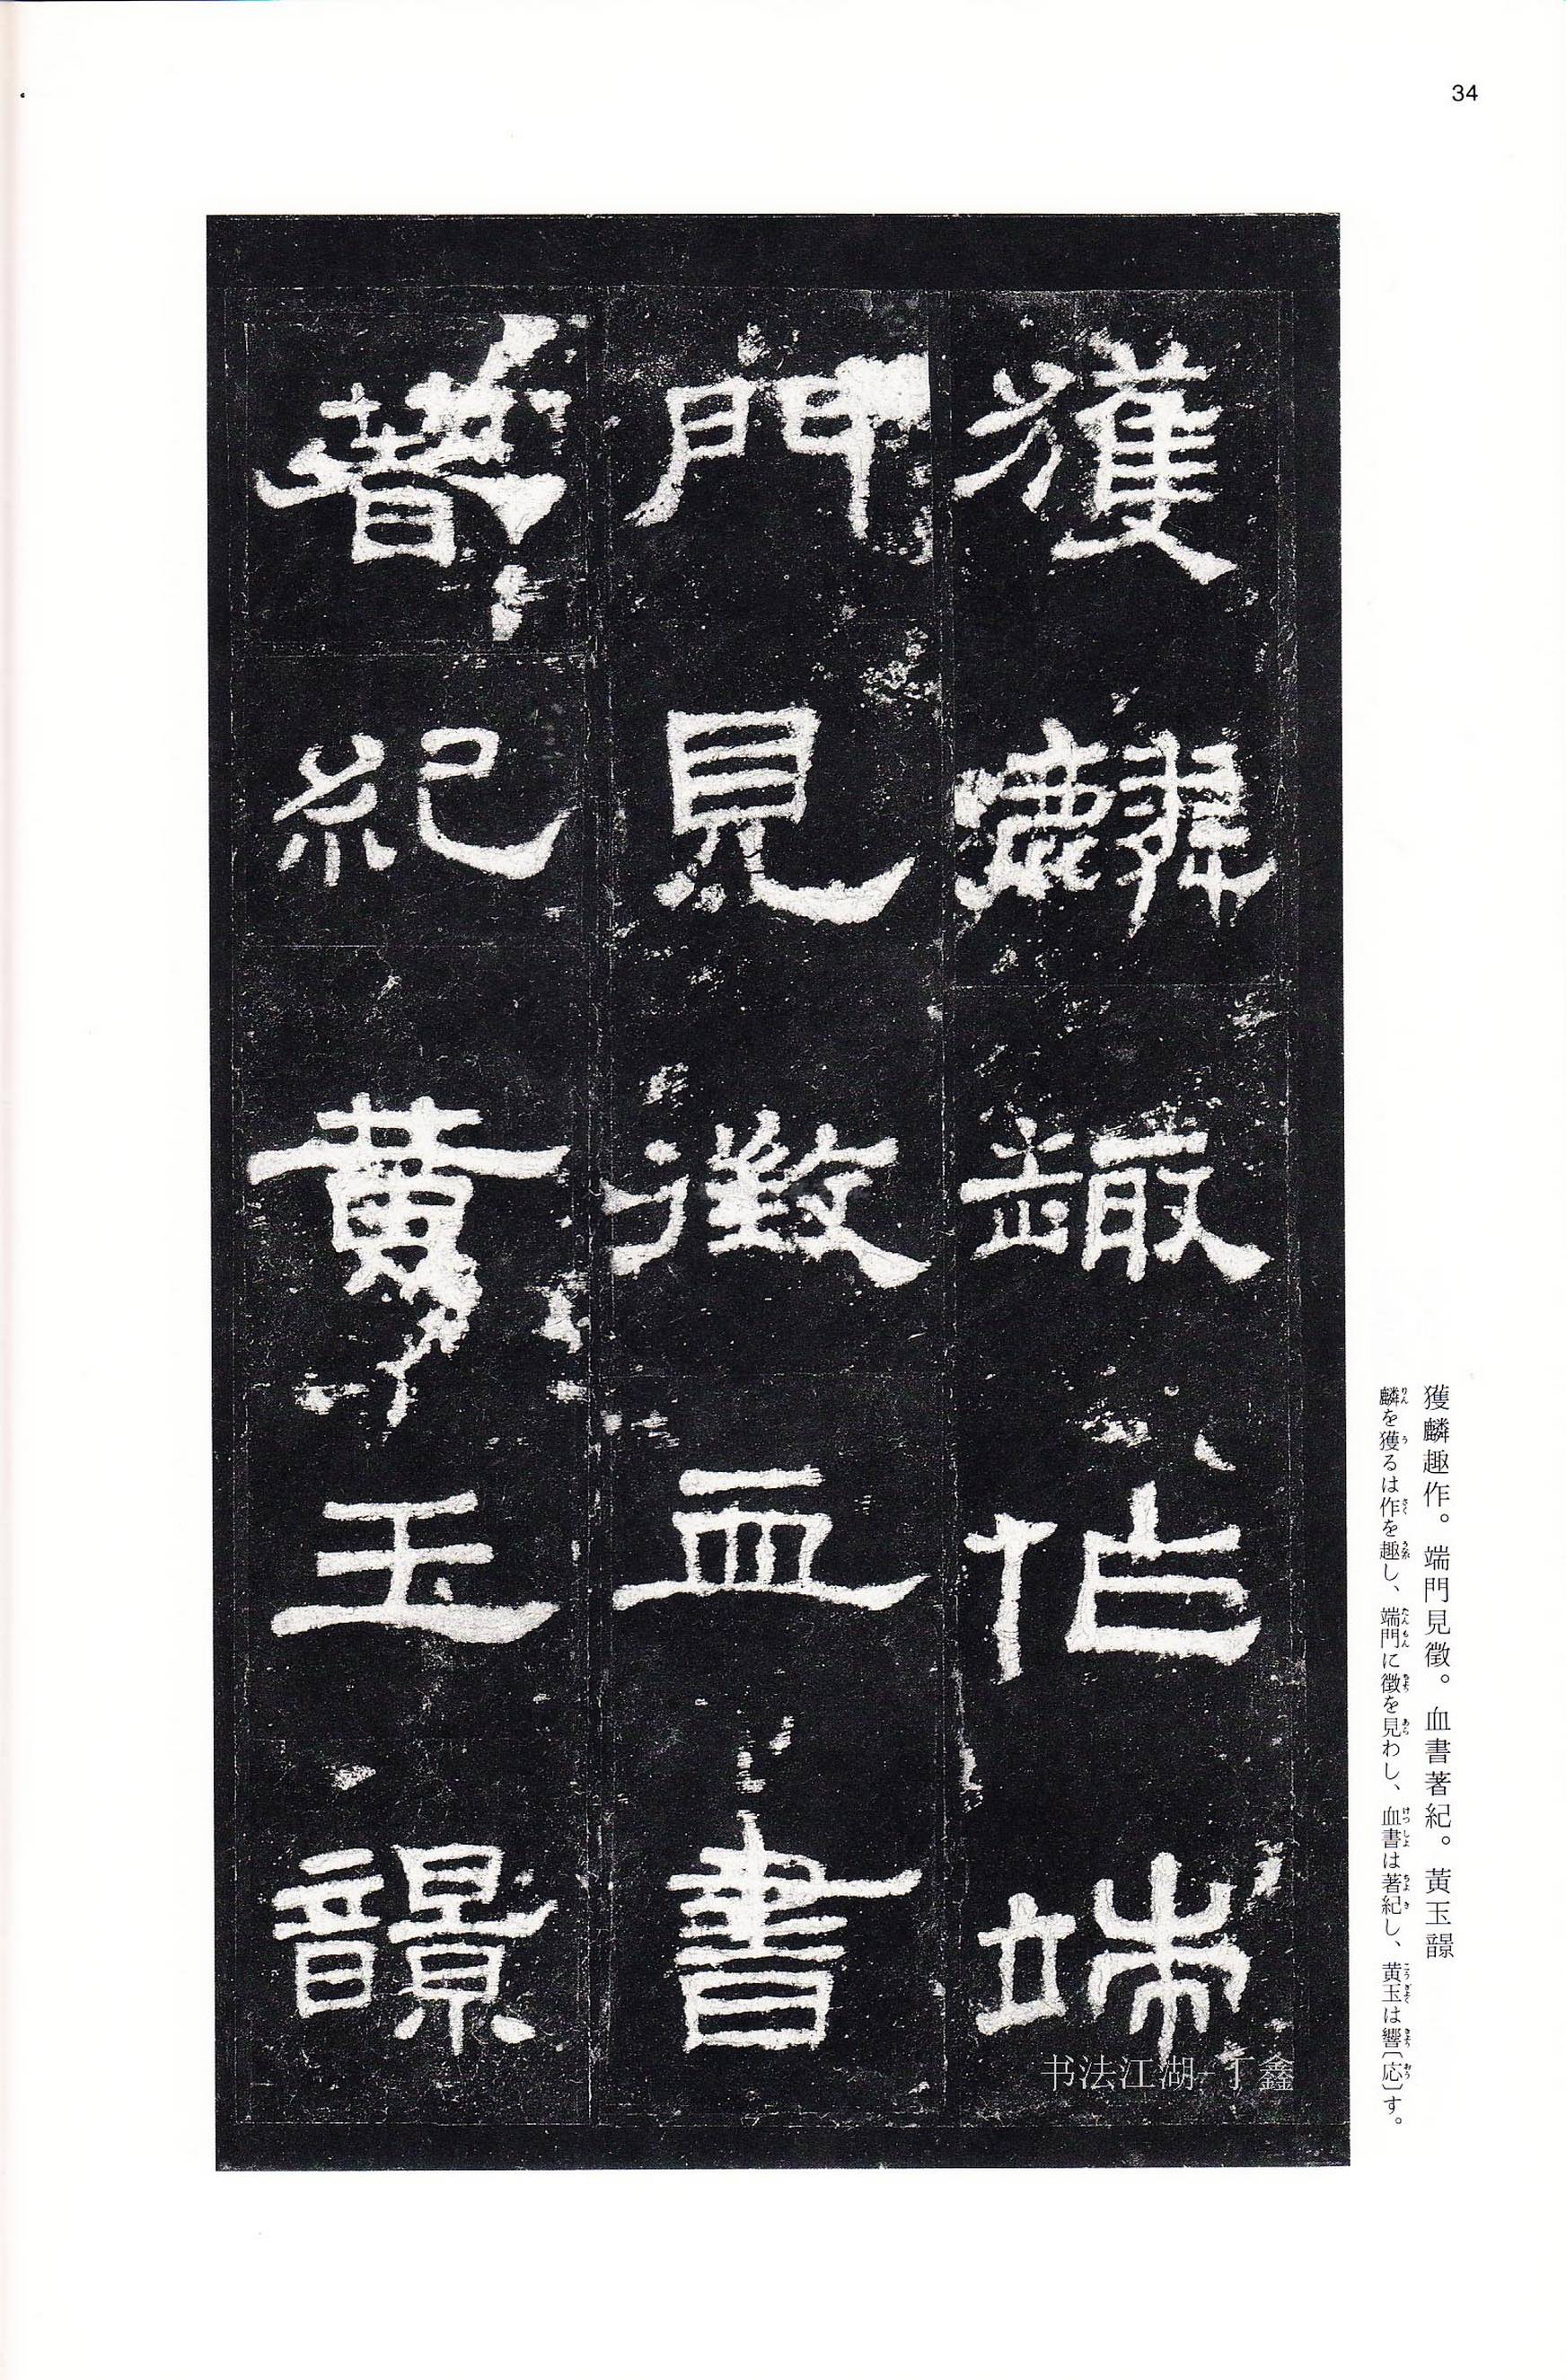 34
獲麟趣作端
門見徵血書
著紀黃玉韻
獲麟趣作。端門見徵。血書著紀。黃玉韻
麟を獲るは作を趣し、端門に徵を見わし、血書は著紀し、黄玉は響〔応〕す。
书法江湖-丁鑫